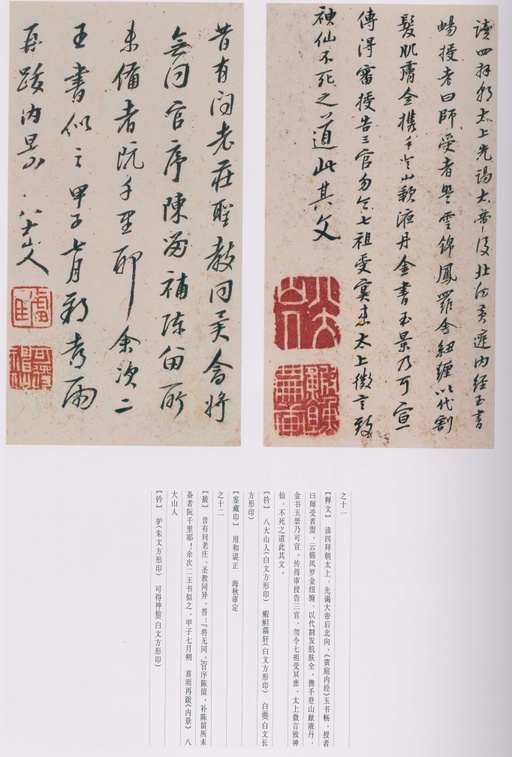 读四拜朝太上先謁太帝後北向黄庭内经玉書
暢授者曰師受者盟雲錦鳳羅金紐纏以代割
髮肌膚全携手登山歃液丹金書玉景乃可宣
傳得審授告三官勿令七祖受冥患太上微言致
神仙不死之道此其文
八大山人
昔有问老莊聖教同異會將
無同官序陳留補陈留所
未備者阮千里耶余次二
王書似之甲子七月朔喜雨
再跋内景 八大山人
可得神仙
之十一
【释文】 读四拜朝太上，先谒大帝后北向，《黄庭内经》玉书畅，授者
曰师受者盟，云锦凤罗金纽缠，以代割发肌肤全，携手登山歃液丹，
金书玉景乃可宣，传得审授告三官，勿令七祖受冥患，太上微言致神
仙，不死之道此其文。
【钤】 八大山人(白文方形印) 篇轩(白文方形印) 白画(白文长
方形印)
【鉴藏印】 用和 正 海秋审定
之十二
【跋】 昔有问老庄，圣教同异，答：『将无同』，官序陈留，补陈留所未
备者阮千里耶！余次二王书似之，甲子七月朔 喜雨再跋《内景》 八
大山人
【钤】 驴(朱文方形印) 可得神仙(白文方形印)